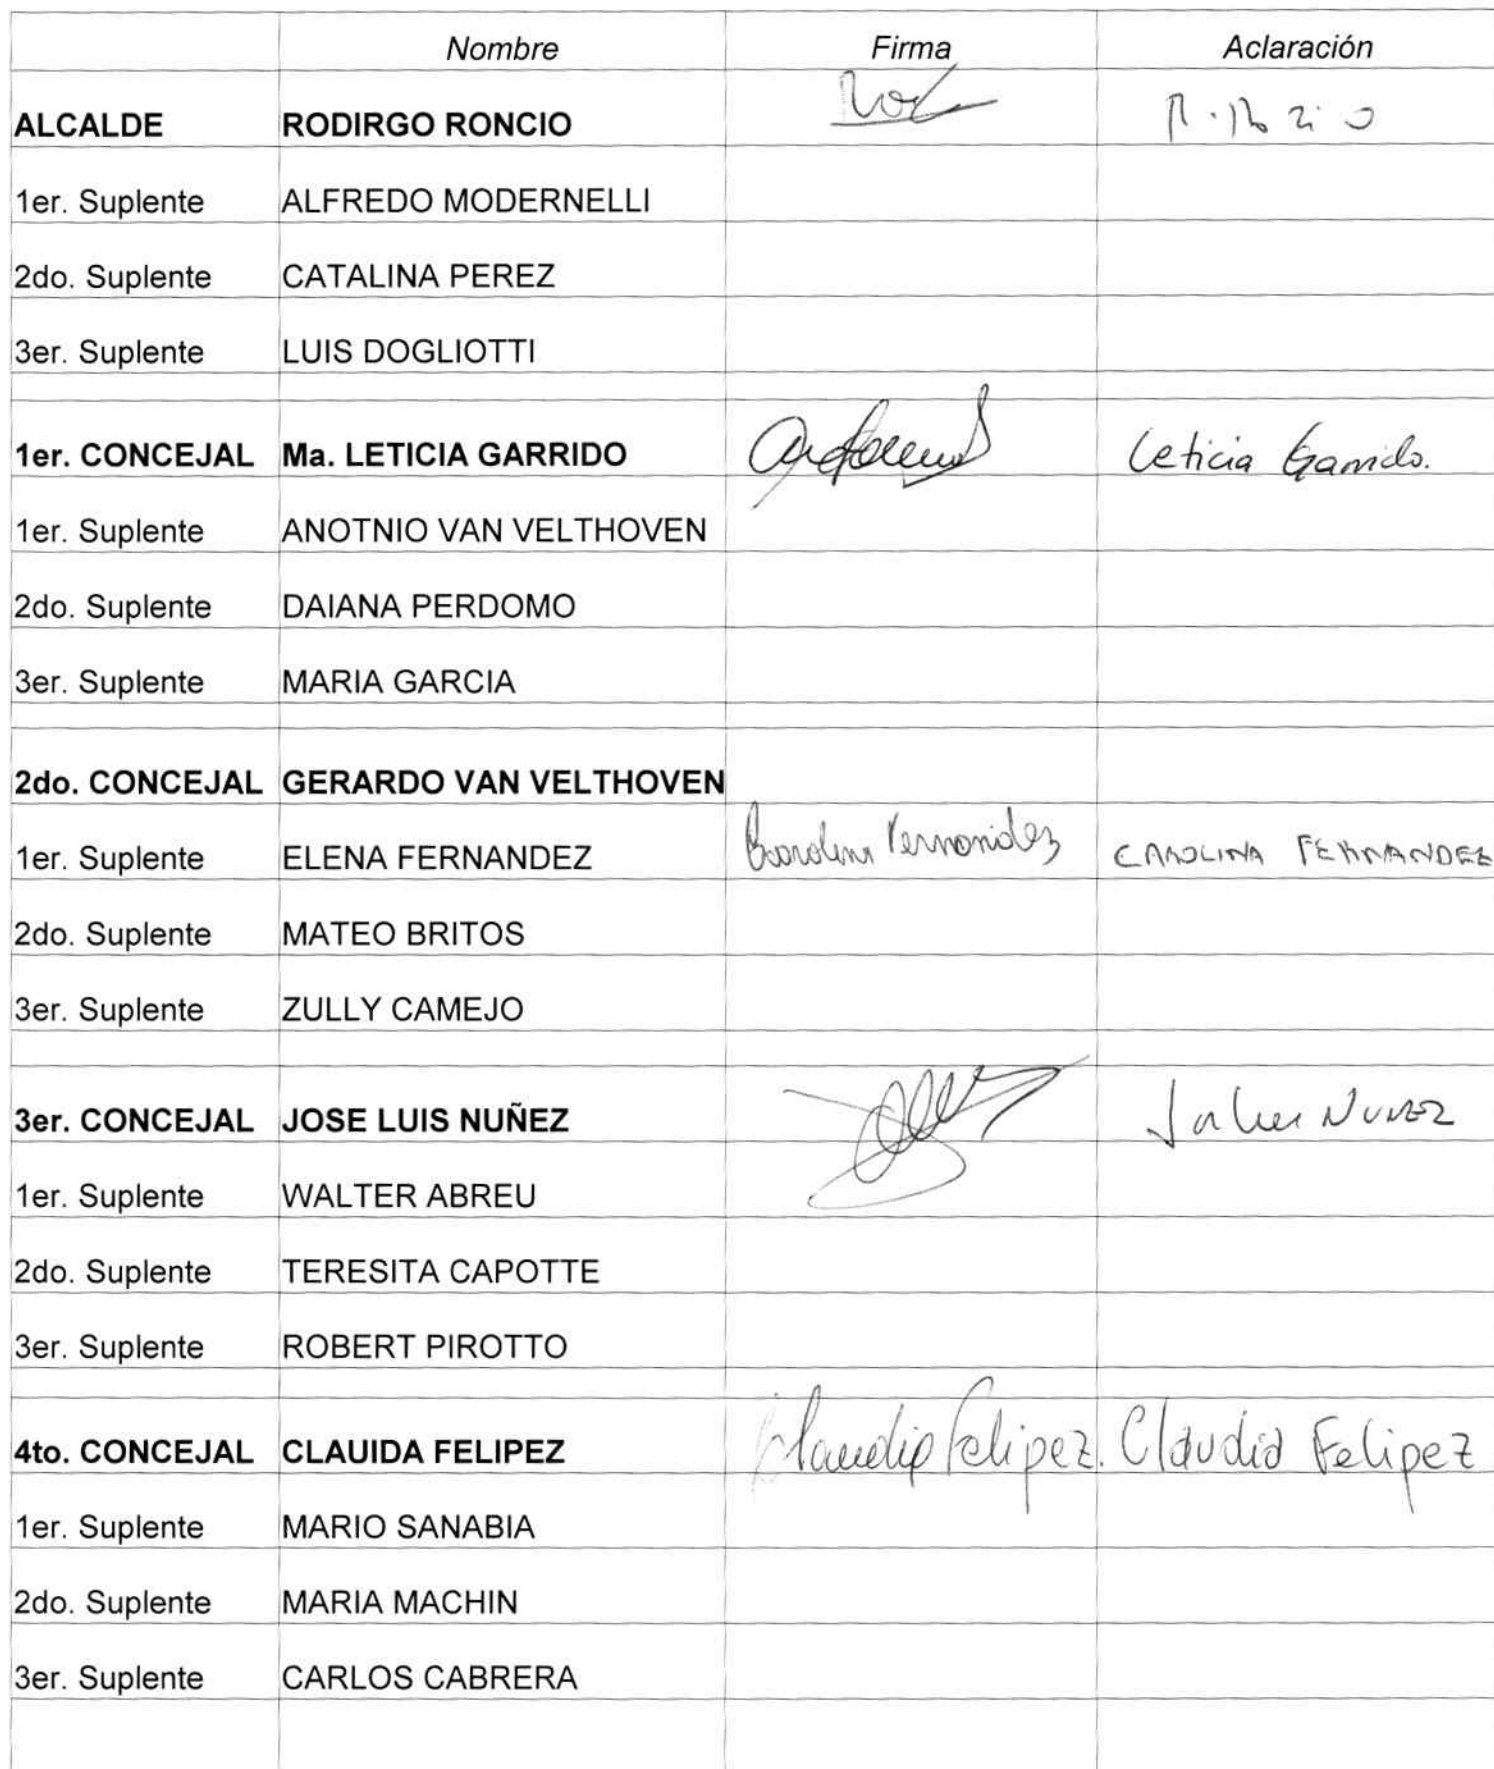 Nombre Firma Aclaración
ALCALDE RODIRGO RONCIO
1er. Suplente ALFREDO MODERNELLI
2do. Suplente CATALINA PEREZ
3er. Suplente LUIS DOGLIOTTI
1er. CONCEJAL Ma. LETICIA GARRIDO Leticia Garrido.
1er. Suplente ANOTNIO VAN VELTHOVEN
2do. Suplente DAIANA PERDOMO
3er. Suplente MARIA GARCIA
2do. CONCEJAL GERARDO VAN VELTHOVEN
1er. Suplente ELENA FERNANDEZ Carolina Fernandez CAROLINA FERNANDEZ
2do. Suplente MATEO BRITOS
3er. Suplente ZULLY CAMEJO
3er. CONCEJAL JOSE LUIS NUÑEZ NUNEZ
1er. Suplente WALTER ABREU
2do. Suplente TERESITA CAPOTTE
3er. Suplente ROBERT PIROTTO
4to. CONCEJAL CLAUIDA FELIPEZ Claudia Felipez. Claudia Felipez
1er. Suplente MARIO SANABIA
2do. Suplente MARIA MACHIN
3er. Suplente CARLOS CABRERA